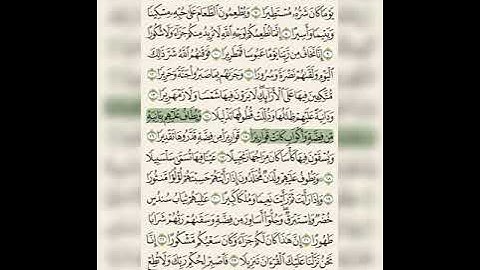 يَوْمًا كَانَ شَرُّهُ مُسْتَطِيرًا ٧ وَيُطْعِمُونَ الطَّعَامَ عَلَىٰ حُبِّهِ مِسْكِينًا
وَيَتِيمًا وَأَسِيرًا ٨ إِنَّمَا نُطْعِمُكُمْ لِوَجْهِ اللَّهِ لَا نُرِيدُ مِنكُمْ جَزَاءً وَلَا شُكُورًا
٩ إِنَّا نَخَافُ مِن رَّبِّنَا يَوْمًا عَبُوسًا قَمْطَرِيرًا ١٠ فَوَقَاهُمُ اللَّهُ شَرَّ ذَٰلِكَ
الْيَوْمِ وَلَقَّاهُمْ نَضْرَةً وَسُرُورًا ١١ وَجَزَاهُم بِمَا صَبَرُوا جَنَّةً وَحَرِيرًا ١٢
مُّتَّكِئِينَ فِيهَا عَلَى الْأَرَائِكِ لَا يَرَوْنَ فِيهَا شَمْسًا وَلَا زَمْهَرِيرًا ١٣
وَدَانِيَةً عَلَيْهِمْ ظِلَالُهَا وَذُلِّلَتْ قُطُوفُهَا تَذْلِيلًا ١٤ وَيُطَافُ عَلَيْهِم بِآنِيَةٍ
مِّن فِضَّةٍ وَأَكْوَابٍ كَانَتْ قَوَارِيرَا ١٥ قَوَارِيرَا مِن فِضَّةٍ قَدَّرُوهَا تَقْدِيرًا ١٦
وَيُسْقَوْنَ فِيهَا كَأْسًا كَانَ مِزَاجُهَا زَنجَبِيلًا ١٧ عَيْنًا فِيهَا تُسَمَّىٰ سَلْسَبِيلًا
١٨ وَيَطُوفُ عَلَيْهِمْ وِلْدَانٌ مُّخَلَّدُونَ إِذَا رَأَيْتَهُمْ حَسِبْتَهُمْ لُؤْلُؤًا مَّنثُورًا
١٩ وَإِذَا رَأَيْتَ ثَمَّ رَأَيْتَ نَعِيمًا وَمُلْكًا كَبِيرًا ٢٠ عَالِيَهُمْ ثِيَابُ سُندُسٍ
خُضْرٌ وَإِسْتَبْرَقٌ وَحُلُّوا أَسَاوِرَ مِن فِضَّةٍ وَسَقَاهُمْ رَبُّهُمْ شَرَابًا
طَهُورًا ٢١ إِنَّ هَٰذَا كَانَ لَكُمْ جَزَاءً وَكَانَ سَعْيُكُم مَّشْكُورًا ٢٢ إِنَّا
نَحْنُ نَزَّلْنَا عَلَيْكَ الْقُرْآنَ تَنزِيلًا ٢٣ فَاصْبِرْ لِحُكْمِ رَبِّكَ وَلَا تُطِعْ